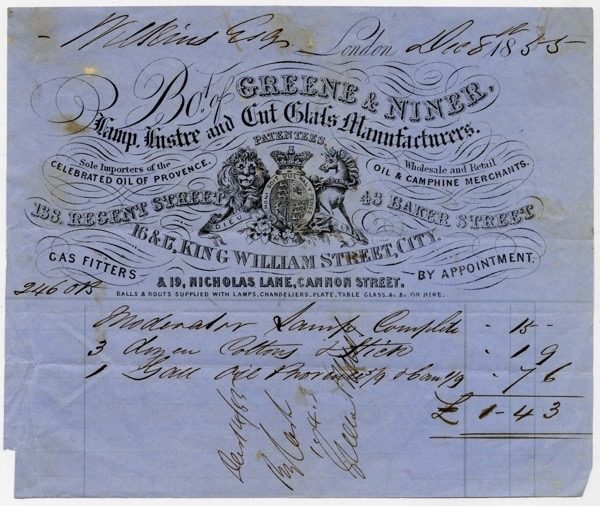 Wilkins Esq London Dec 8th 1855
Bot. of GREENE & NINER,
Lamp, Lustre and Cut Glass Manufacturers.
PATENTEES.
Sole Importers of the
CELEBRATED OIL OF PROVENCE.
Wholesale and Retail
OIL & CAMPHINE MERCHANTS.
138, REGENT STREET
43 BAKER STREET
16 & 17, KING WILLIAM STREET, CITY.
GAS FITTERS
BY APPOINTMENT.
& 19, NICHOLAS LANE, CANNON STREET.
BALLS & ROUTS SUPPLIED WITH LAMPS, CHANDELIERS, PLATE, TABLE GLASS, &c. &c. ON HIRE.
Moderator Lamp Complete - 15 -
3 dozen Cottons & Stick - 1 9
1 Gall Oil 5/9 Can 1/9 - 7 6
£ 1 - 4 3
By Cash